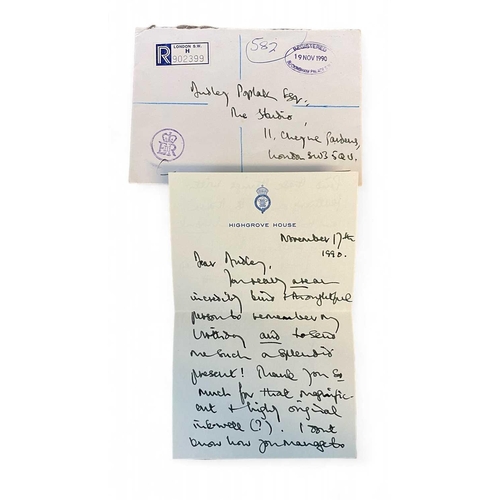 LONDON S.W.
H
R 902399
582
REGISTERED
19 NOV 1990
BUCKINGHAM PALACE
Esq.,
The Studio,
11, Cheyne Gardens,
London SW3 5QU.
EIIR
HIGHGROVE HOUSE
November 17th
1990.
Dear
You really are an
incredibly kind & thoughtful
person to remember my
birthday and to send
me such a splendid
present! Thank you so
much for that magnific-
ent & highly original
inkwell (?). I don't
know how you manage to